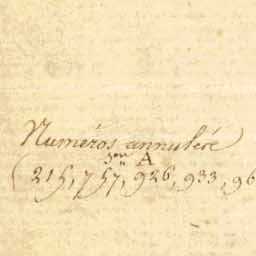 Numéros annulés
A
(215, 757, 926, 933, 96